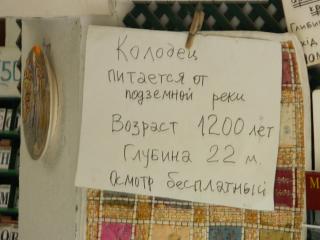 Колодец
питается от
подземной реки
Возраст 1200 лет
Глубина 22 м.
Осмотр бесплатный